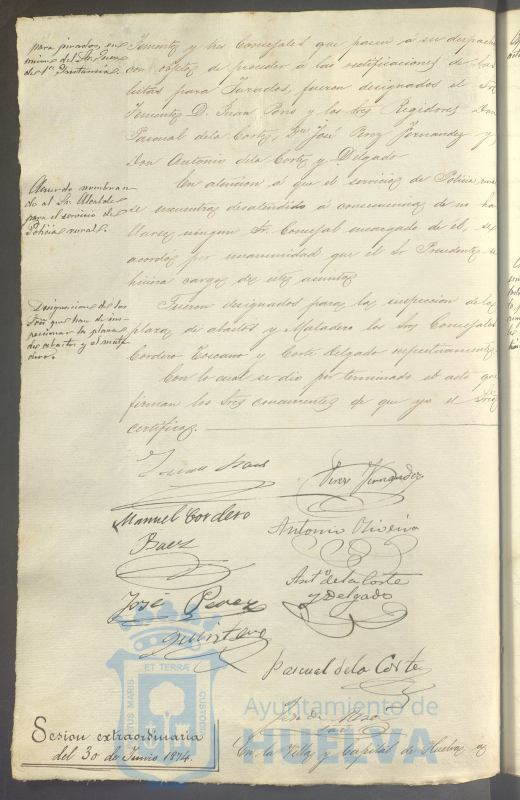 para jurados, en
mine del Sr. Juez
de 1ª Instancia.
Teniente y tres Concejales que pasen á su despacho
con objeto de proceder á las rectificaciones de las
listas para Jurados, fueron designados el Sr.
Teniente D. Juan Pons y los Sres. Regidores Don
Pascual de la Corte, Don José Perez Fernandez y
Don Antonio de la Corte y Delgado
Acuerdo nombran
do al Sr. Alcalde
para el servicio de
Policia rural.
En atencion á que el servicio de Policia rural
se encuentra desatendido á consecuencia de no ha
llarse ningun Sr. Concejal encargado de él, se
acordó por unanimidad que el Sr. Presidente se
hiciera cargo de este asunto
Designacion de los
Sres. que han de ins-
peccionar la plaza
de abastos y el mata
dero.
Fueron designados para la inspeccion de la
plaza de abastos y Matadero los Sres. Concejales
Cordero Toscano y Corte Delgado respectivamente.
Con lo cual se dió por terminado el acto que
firman los Sres. concurrentes de que yo el Srio.
certifico.
Perez Fernandez
Manuel Cordero
Baez
Antonio Oliveira
Antº de la Corte
y Delgado
José Perez
Quintero
Pascual de la Corte
ET TERRÆ
CUSTODIA
Ayuntamiento de
HUELVA
Sesion extraordinaria
del 30 de Junio 1874.
En la Villa y Capital de Huelva á